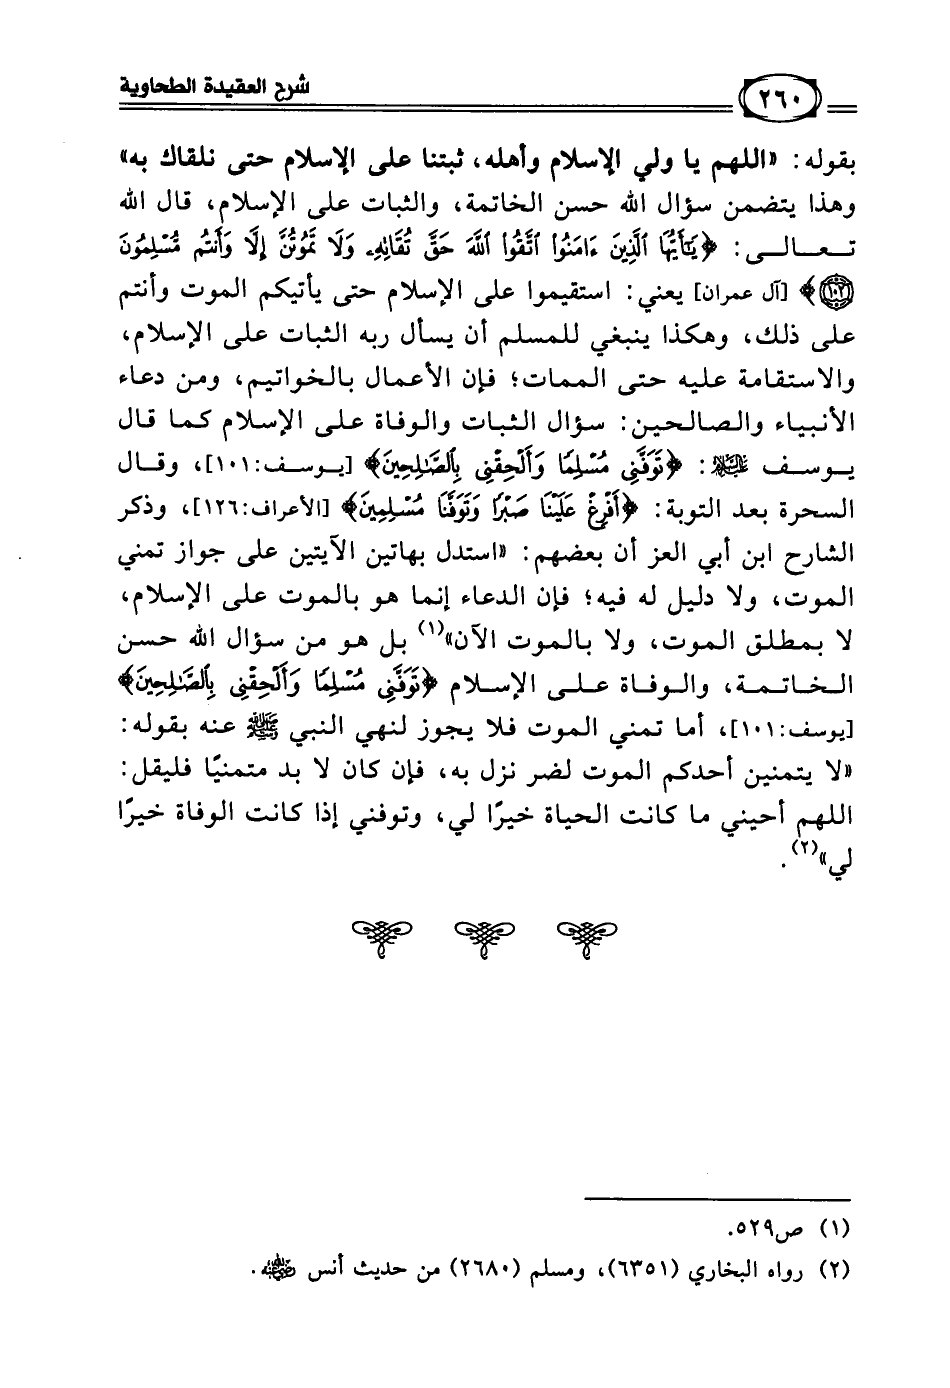 شرح العقيدة الطحاوية
٢٦٠
بقوله: «اللهم يا ولي الإسلام وأهله، ثبتنا على الإسلام حتى نلقاك به»
وهذا يتضمن سؤال الله حسن الخاتمة، والثبات على الإسلام، قال الله
تعالى: ﴿يَٰٓأَيُّهَا ٱلَّذِينَ ءَامَنُوا۟ ٱتَّقُوا۟ ٱللَّهَ حَقَّ تُقَاتِهِۦ وَلَا تَمُوتُنَّ إِلَّا وَأَنتُم مُّسْلِمُونَ
١٠٢﴾ [آل عمران] يعني: استقيموا على الإسلام حتى يأتيكم الموت وأنتم
على ذلك، وهكذا ينبغي للمسلم أن يسأل ربه الثبات على الإسلام،
والاستقامة عليه حتى الممات؛ فإن الأعمال بالخواتيم، ومن دعاء
الأنبياء والصالحين: سؤال الثبات والوفاة على الإسلام كما قال
يوسف عليه السلام: ﴿تَوَفَّنِى مُسْلِمًا وَأَلْحِقْنِى بِٱلصَّٰلِحِينَ﴾ [يوسف:١٠١]، وقال
السحرة بعد التوبة: ﴿أَفْرِغْ عَلَيْنَا صَبْرًا وَتَوَفَّنَا مُسْلِمِينَ﴾ [الأعراف:١٢٦]، وذكر
الشارح ابن أبي العز أن بعضهم: «استدل بهاتين الآيتين على جواز تمني
الموت، ولا دليل له فيه؛ فإن الدعاء إنما هو بالموت على الإسلام،
لا بمطلق الموت، ولا بالموت الآن»(١) بل هو من سؤال الله حسن
الخاتمة، والوفاة على الإسلام ﴿تَوَفَّنِى مُسْلِمًا وَأَلْحِقْنِى بِٱلصَّٰلِحِينَ﴾
[يوسف:١٠١]، أما تمني الموت فلا يجوز لنهي النبي ﷺ عنه بقوله:
«لا يتمنين أحدكم الموت لضر نزل به، فإن كان لا بد متمنيًا فليقل:
اللهم أحيني ما كانت الحياة خيرًا لي، وتوفني إذا كانت الوفاة خيرًا
لي»(٢).
(١) ص٥٢٩.
(٢) رواه البخاري (٦٣٥١)، ومسلم (٢٦٨٠) من حديث أنس رضي الله عنه.